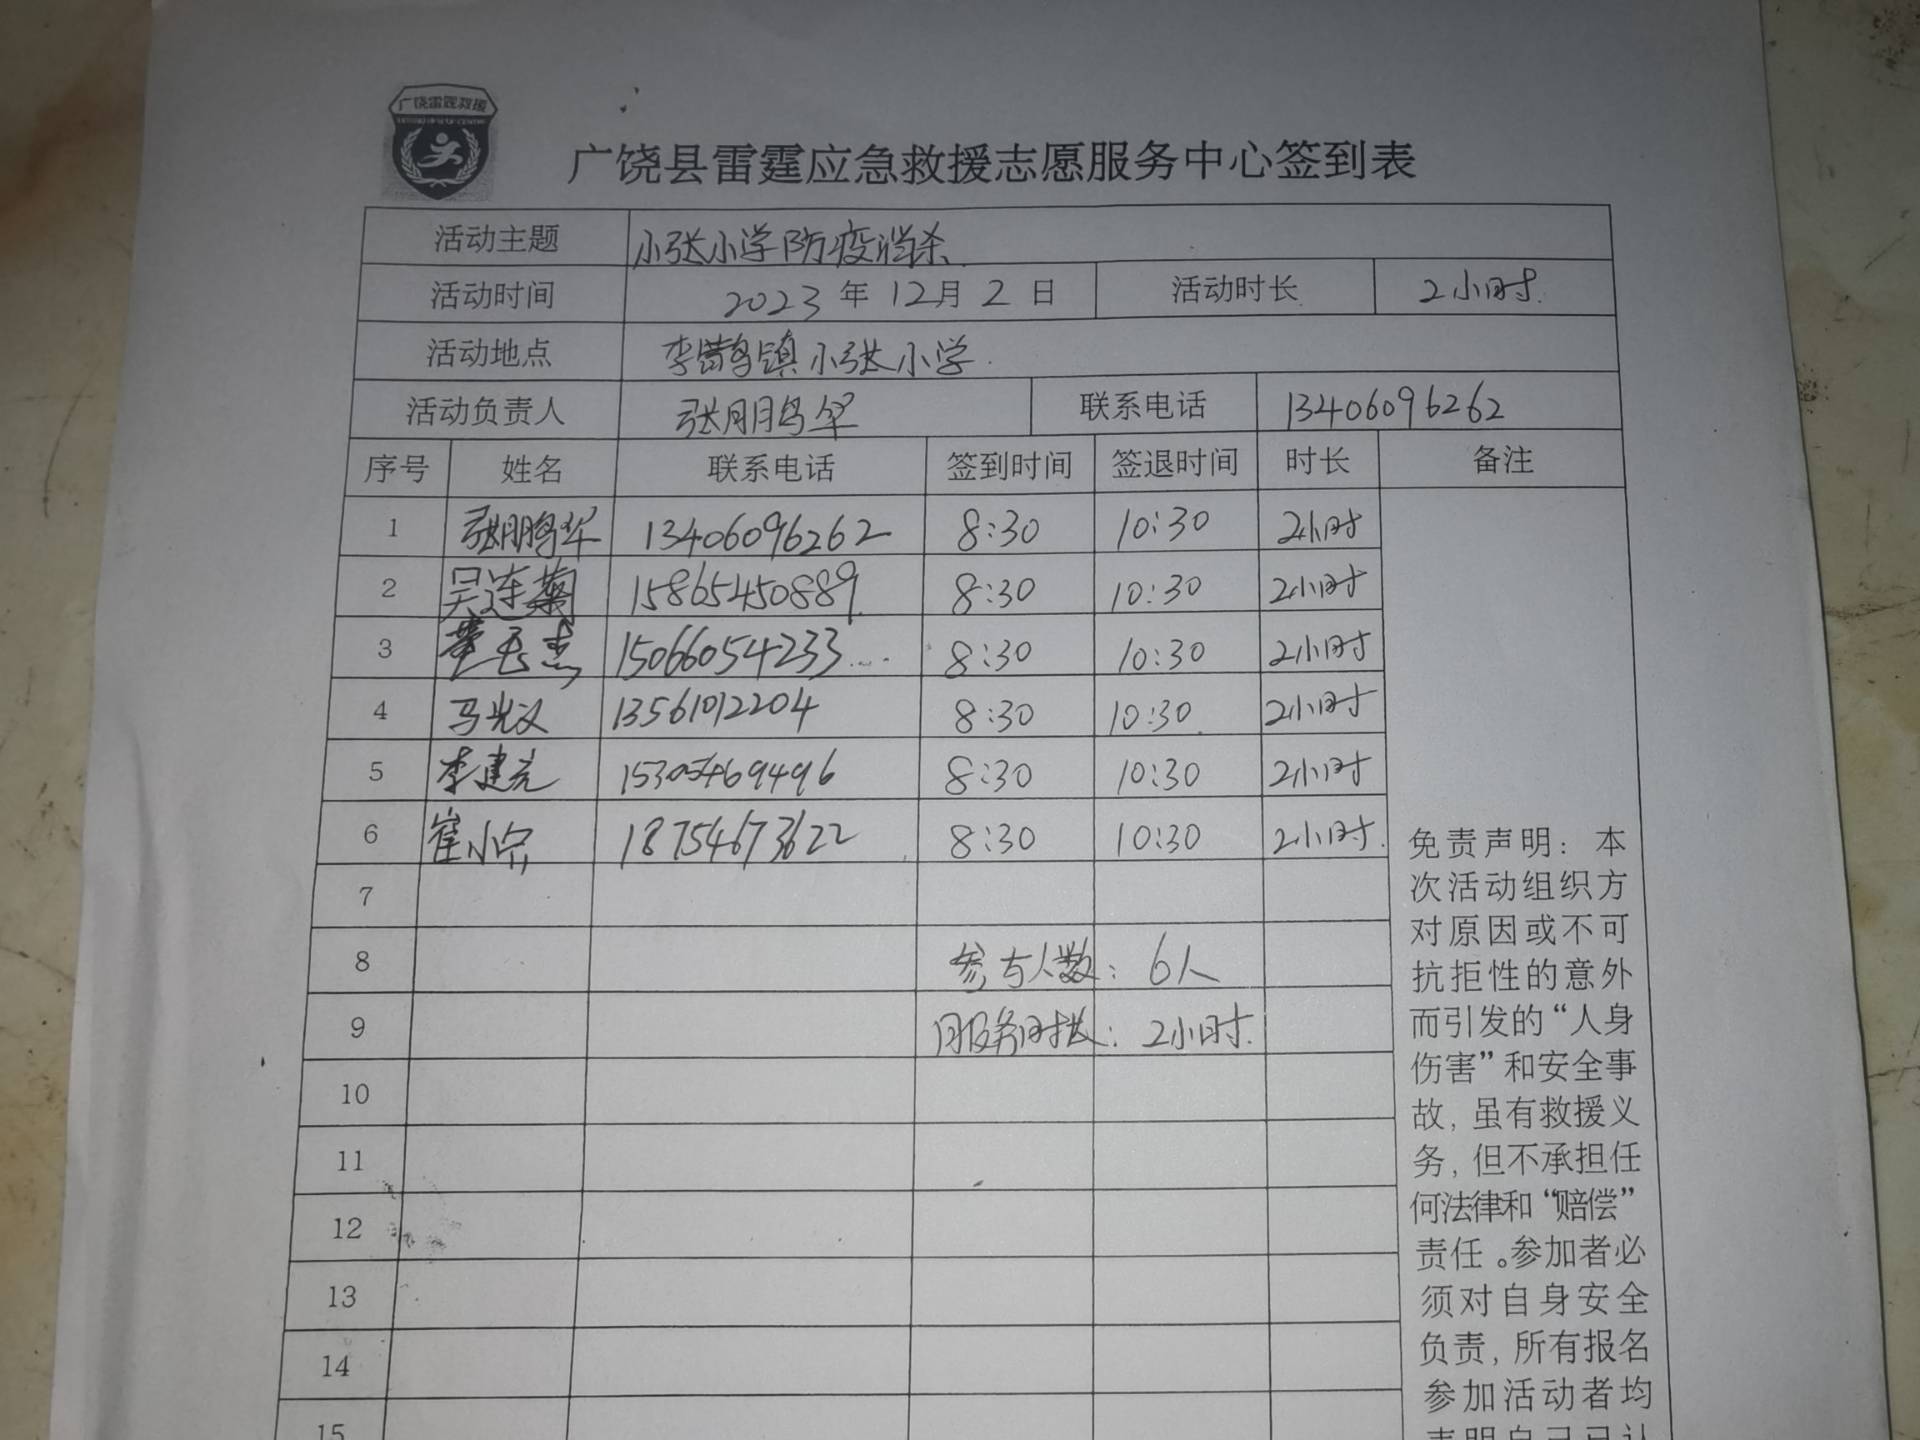 广饶雷霆救援
广饶县雷霆应急救援志愿服务中心签到表
活动主题 小张小学防疫消杀
活动时间 2023年12月2日 活动时长 2小时
活动地点 李鹊镇小张小学
活动负责人 张鹏华 联系电话 13406096262
序号 姓名 联系电话 签到时间 签退时间 时长 备注
1 张鹏华 13406096262 8:30 10:30 2小时
2 吴连菊 15865450889 8:30 10:30 2小时
3 15066054233 8:30 10:30 2小时
4 马光义 13561012204 8:30 10:30 2小时
5 李建亮 15305469496 8:30 10:30 2小时
6 崔小宗 18754673622 8:30 10:30 2小时
7
8 参与人数：6人
9 服务时长：2小时
10
11
12
13
14
15
免责声明：本
次活动组织方
对原因或不可
抗拒性的意外
而引发的“人身
伤害”和安全事
故，虽有救援义
务，但不承担任
何法律和“赔偿”
责任。参加者必
须对自身安全
负责，所有报名
参加活动者均
表明自己已认